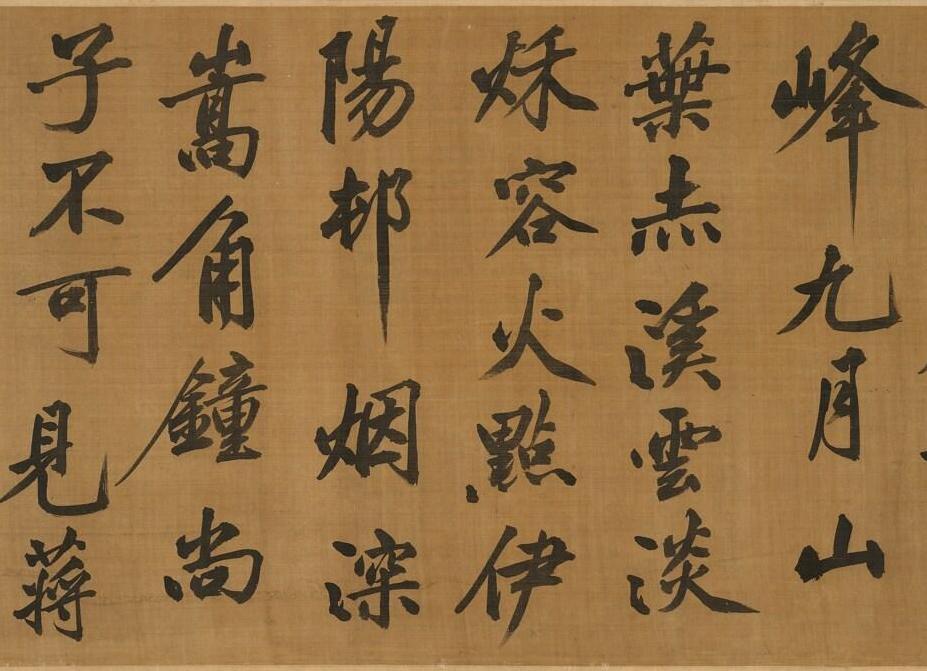 峰九月山
葉赤溪雲淡
秌容火點伊
陽邨烟深
嵩角鐘尚
子不可見蔣